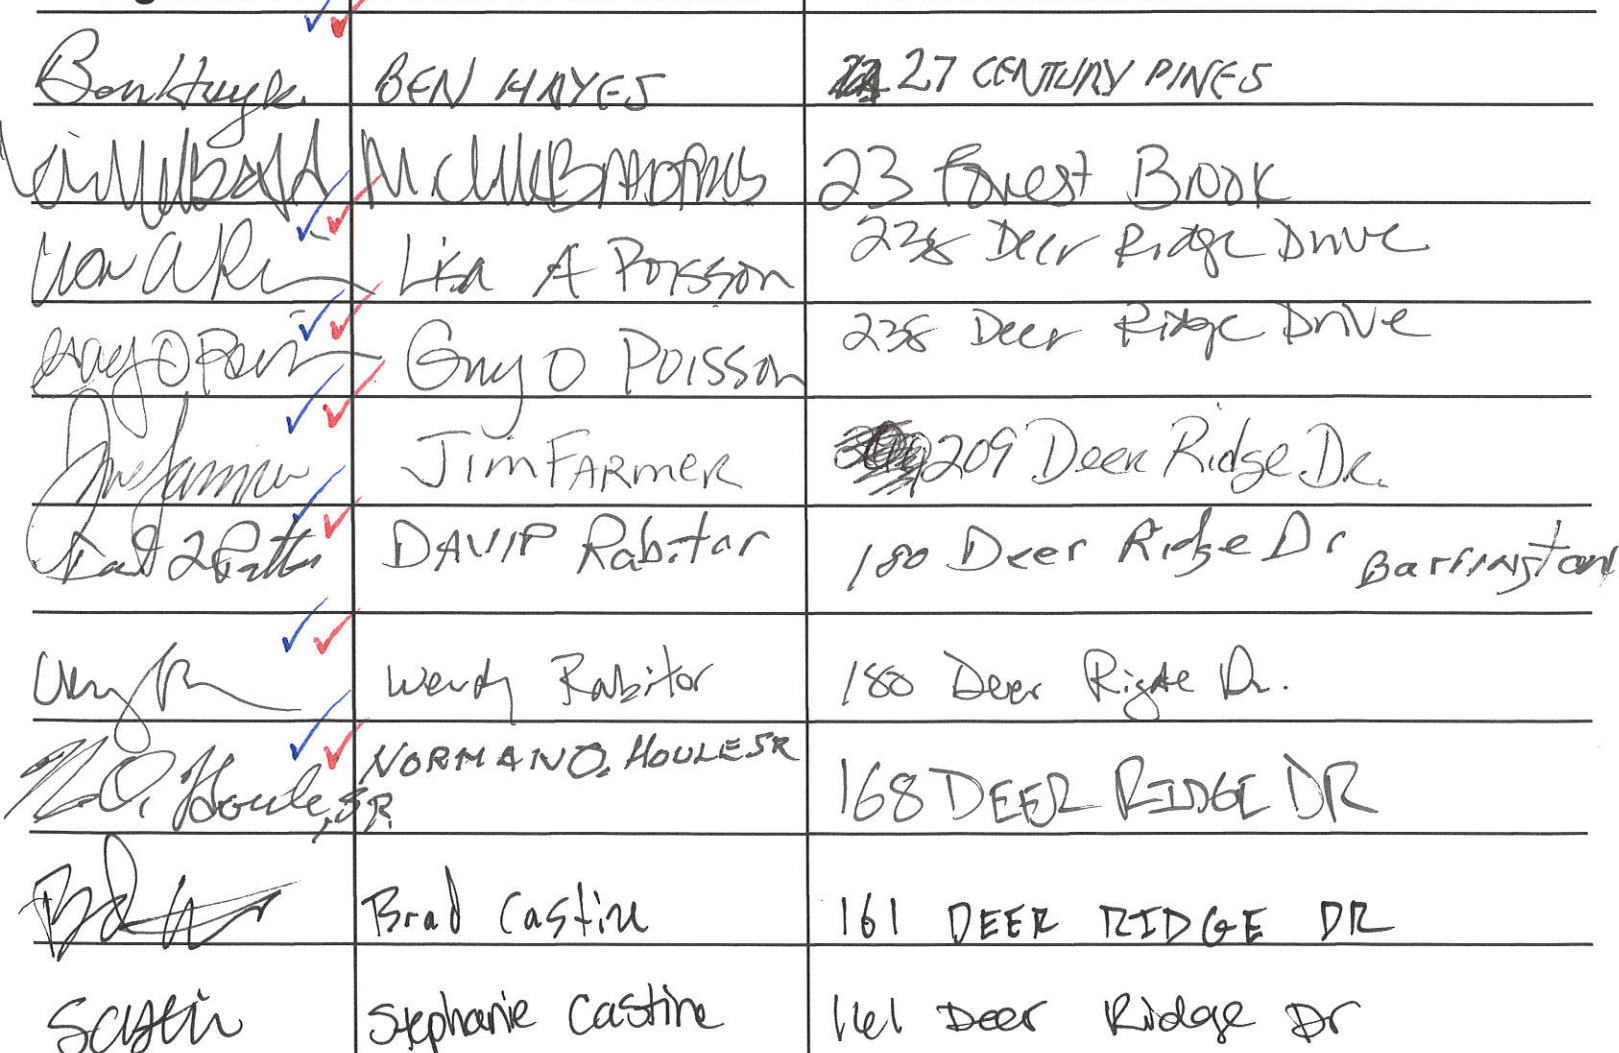 Ben Hayes BEN HAYES 27 CENTURY PINES
23 Forest Brook
Lisa A Poisson 238 Deer Ridge Drive
Guy O Poisson Guy O Poisson 238 Deer Ridge Drive
Jim Farmer Jim FARMER 209 Deer Ridge Dr.
DAVID Rabitor 180 Deer Ridge Dr Barrington
Wendy Rabitor 180 Deer Rigde Dr.
N.O. Houle, SR. NORMAN O. HOULE SR 168 DEER RIDGE DR
Brad Castine 161 DEER RIDGE DR
Stephanie Castine 161 Deer Ridge Dr